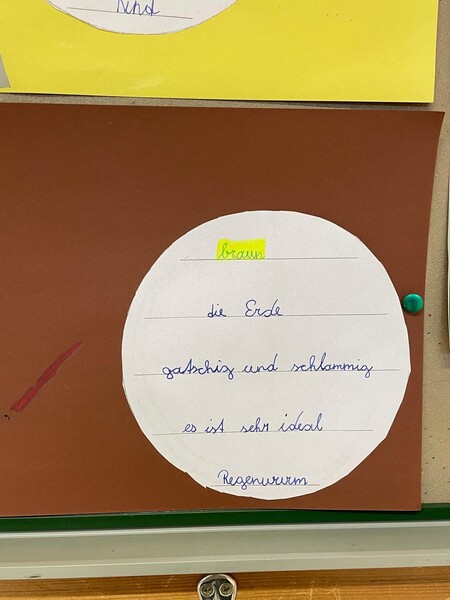 Kind
braun
die Erde
gatschig und schlammig
es ist sehr ideal
Regenwurm